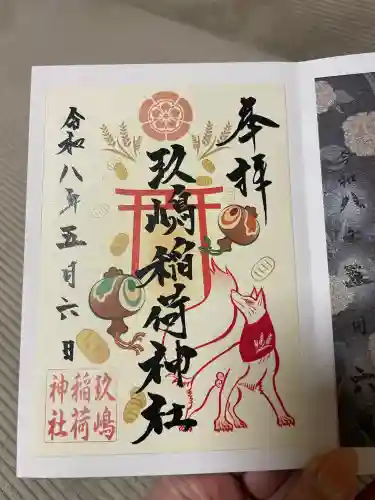 奉拝
玖嶋稲荷神社
令和八年五月六日
玖嶋
稲荷
神社